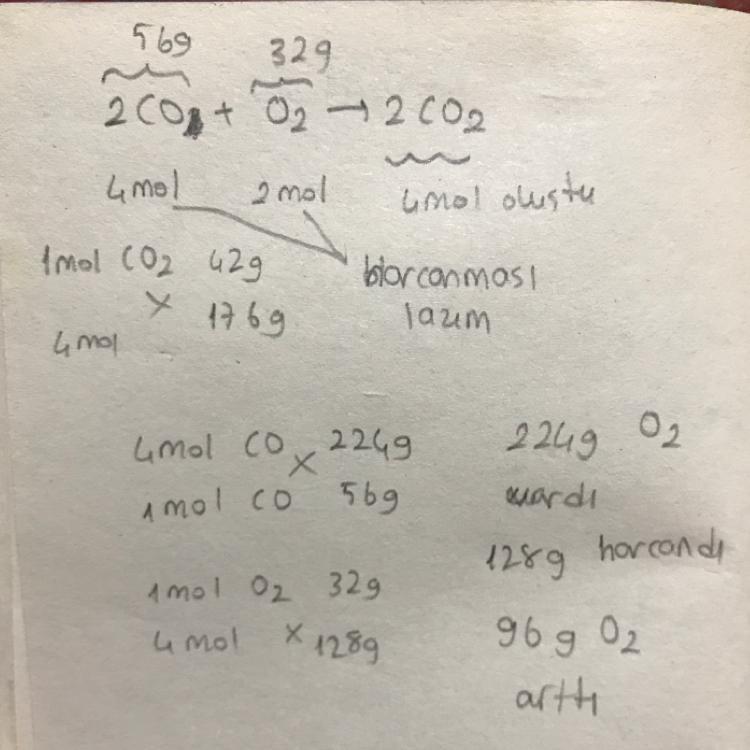 56g 32g
2CO + O2 → 2CO2
4mol 2mol 4mol oluştu
1mol CO2 42g harcanması
x 176g lazım
4mol
4mol CO x 224g 224g O2
1mol CO 56g vardı
128g harcandı
1mol O2 32g
4mol x 128g 96g O2
arttı